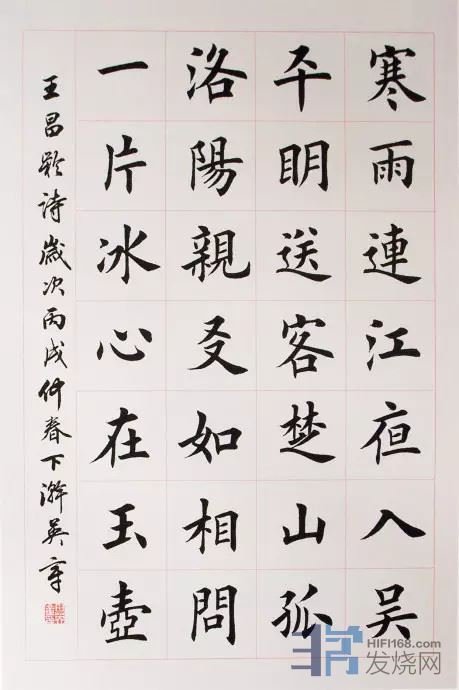 寒雨連江夜入吳
平明送客楚山孤
洛陽親友如相問
一片冰心在玉壺
王昌齡詩歲次丙戌仲春下澣英章
HIFI168.com
发烧网